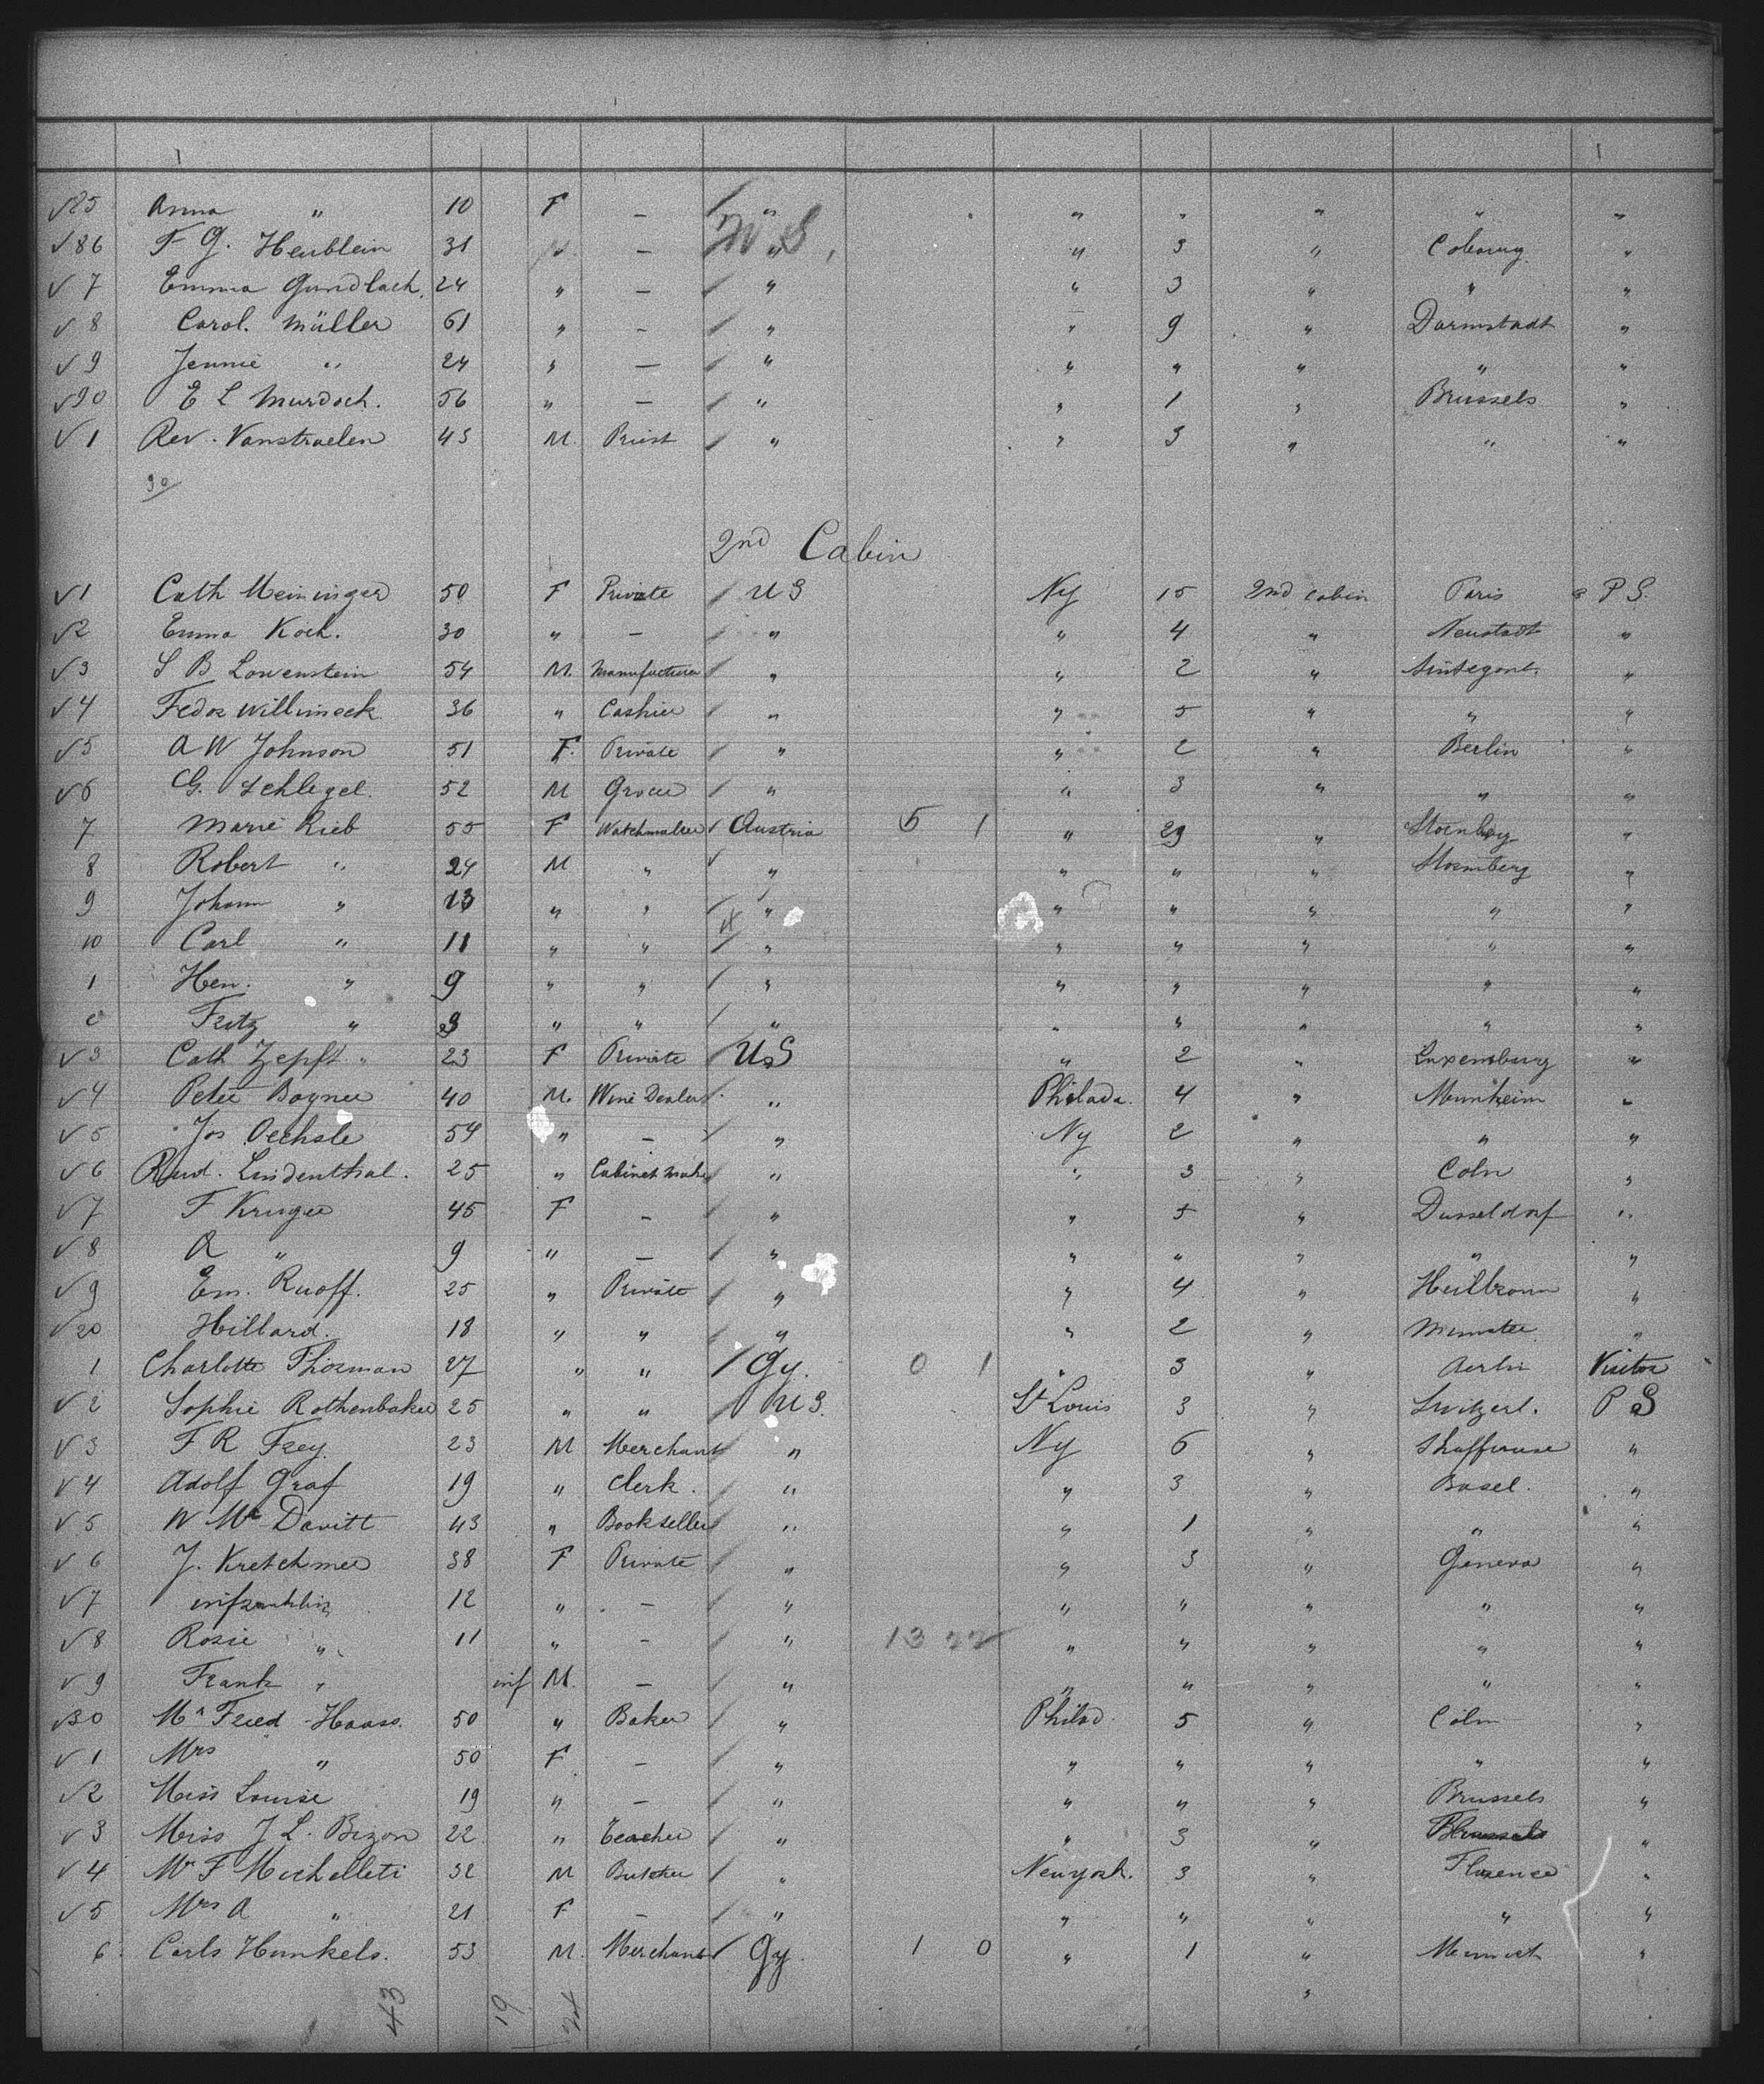 √85 Anna " 10 F — " " " " " "
√86 F G. Heublein 31 " — " " 3 " Coburg "
√ 7 Emma Gundlach. 24 " — " " 3 " " "
√ 8 Carol. Müller 61 " — " " 9 " Darmstadt "
√ 9 Jennie " 24 " — " " " " " "
√90 E L Murdoch. 56 " — " " 1 " Brussels "
√ 1 Rev. Vanstraelen 43 M Priest " " 3 " " "
90
2nd Cabin
√1 Cath Meininger 50 F Private / U S Ny 15 2nd cabin Paris P S.
√2 Emma Koch. 30 " — / " " 4 " Neustadt "
√3 S B Lowenstein 54 M. Manufacturer / " " 2 " "
√4 Fedor Willimeck 36 " Cashier / " " 5 " " "
√5 A W Johnson 51 F. Private / " " 2 " Berlin "
√6 G. Schlegel. 52 M Grocer / " " 3 " " "
7 Marie Rieb 55 F Watchmaker √ Austria 5 1 " 29 " "
8 Robert " 24 M " √ " " " " "
9 Johann " 13 " " / " " " " " "
10 Carl " 11 " " / " " " " " "
1 Hen. " 9 " " / " " " " " "
Fritz " " " / " " " " " "
√3 Cath Zepft " 23 F Private US " 2 " Luxemburg "
√4 Peter Boyner 40 M. Wine Dealer / " Philada. 4 " Mannheim "
√5 Jos Oechsle 54 " — / " Ny 2 " " "
√6 Rud. Lindenthal. 25 " Cabinet Make / " " 3 " Coln "
√7 F Kruger 45 F — / " " 5 " Dusseldorf "
√8 A " 9 " — / " " " " " "
√9 Em. Ruoff. 25 " Private / " " 4 " Heilbronn "
√20 Hillard. 18 " " / " " 2 " Munster "
1 Charlotte Thosman 27 " " / Gy. 0 1 " 3 " Berlin Visitor
√2 Sophie Rothenbaker 25 " " / U S. St Louis 3 " Switzerl. P S
√3 F R Frey. 23 M Merchant " Ny 6 " "
√4 Adolf Graf 19 " Clerk. / " " 3 " Basel. "
√5 W Mc Davitt 43 " Bookseller " " 1 " " "
√6 J. Kretchmer 38 F Private / " " 3 " Geneva "
√7 12 " — / " " " " " "
√8 Rosie " 11 " — / " " " " " "
√9 Frank " inf M. — / " " " " " "
√30 Mr Fried Haass. 50 " Baker / " Philad. 5 " Cöln "
√1 Mrs " 50 F — / " " " " " "
√2 Miss Louise 19 " — / " " " " Brussels "
√3 Miss J L. Bizon 22 " Teacher / " " 3 " Brussels "
√4 Mr F Michelleti 32 M Butcher / " New york. 3 " Florence "
√5 Mrs A " 21 F — / " " " " " "
6 Carls Hunkels. 53 M. Merchant / Gy. 1 0 " 1 " "
43 19